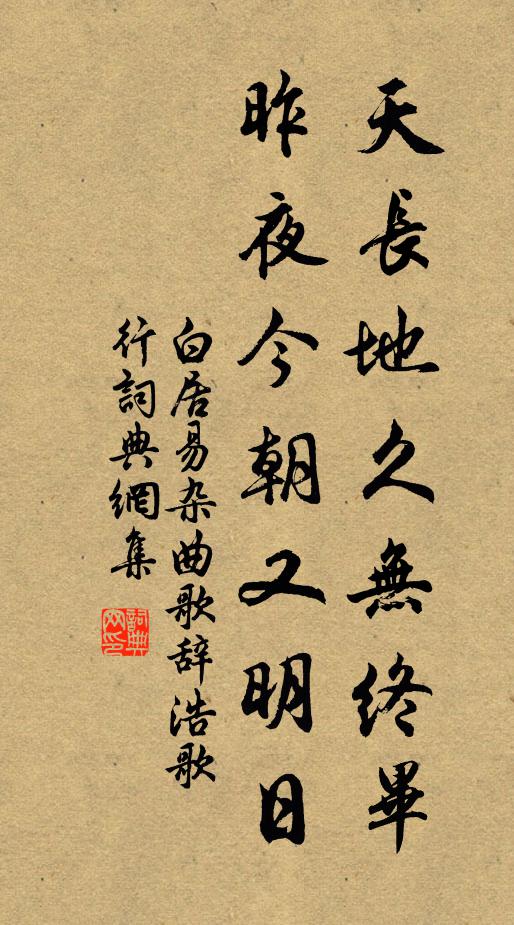 天長地久無終畢
昨夜今朝又明日
白居易杂曲歌辞浩歌
行詞典網集
詞典
网印